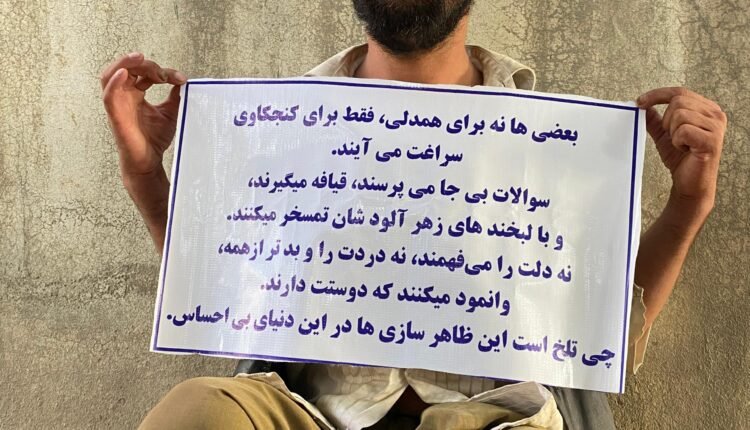 بعضی ها نه برای همدلی، فقط برای کنجکاوی
سراغت می آیند.
سوالات بی جا می پرسند، قیافه میگیرند،
و با لبخند های زهر آلود شان تمسخر میکنند.
نه دلت را می‌فهمند، نه دردت را و بدتر ازهمه،
وانمود میکنند که دوستت دارند.
چی تلخ است این ظاهر سازی ها در این دنیای بی احساس.